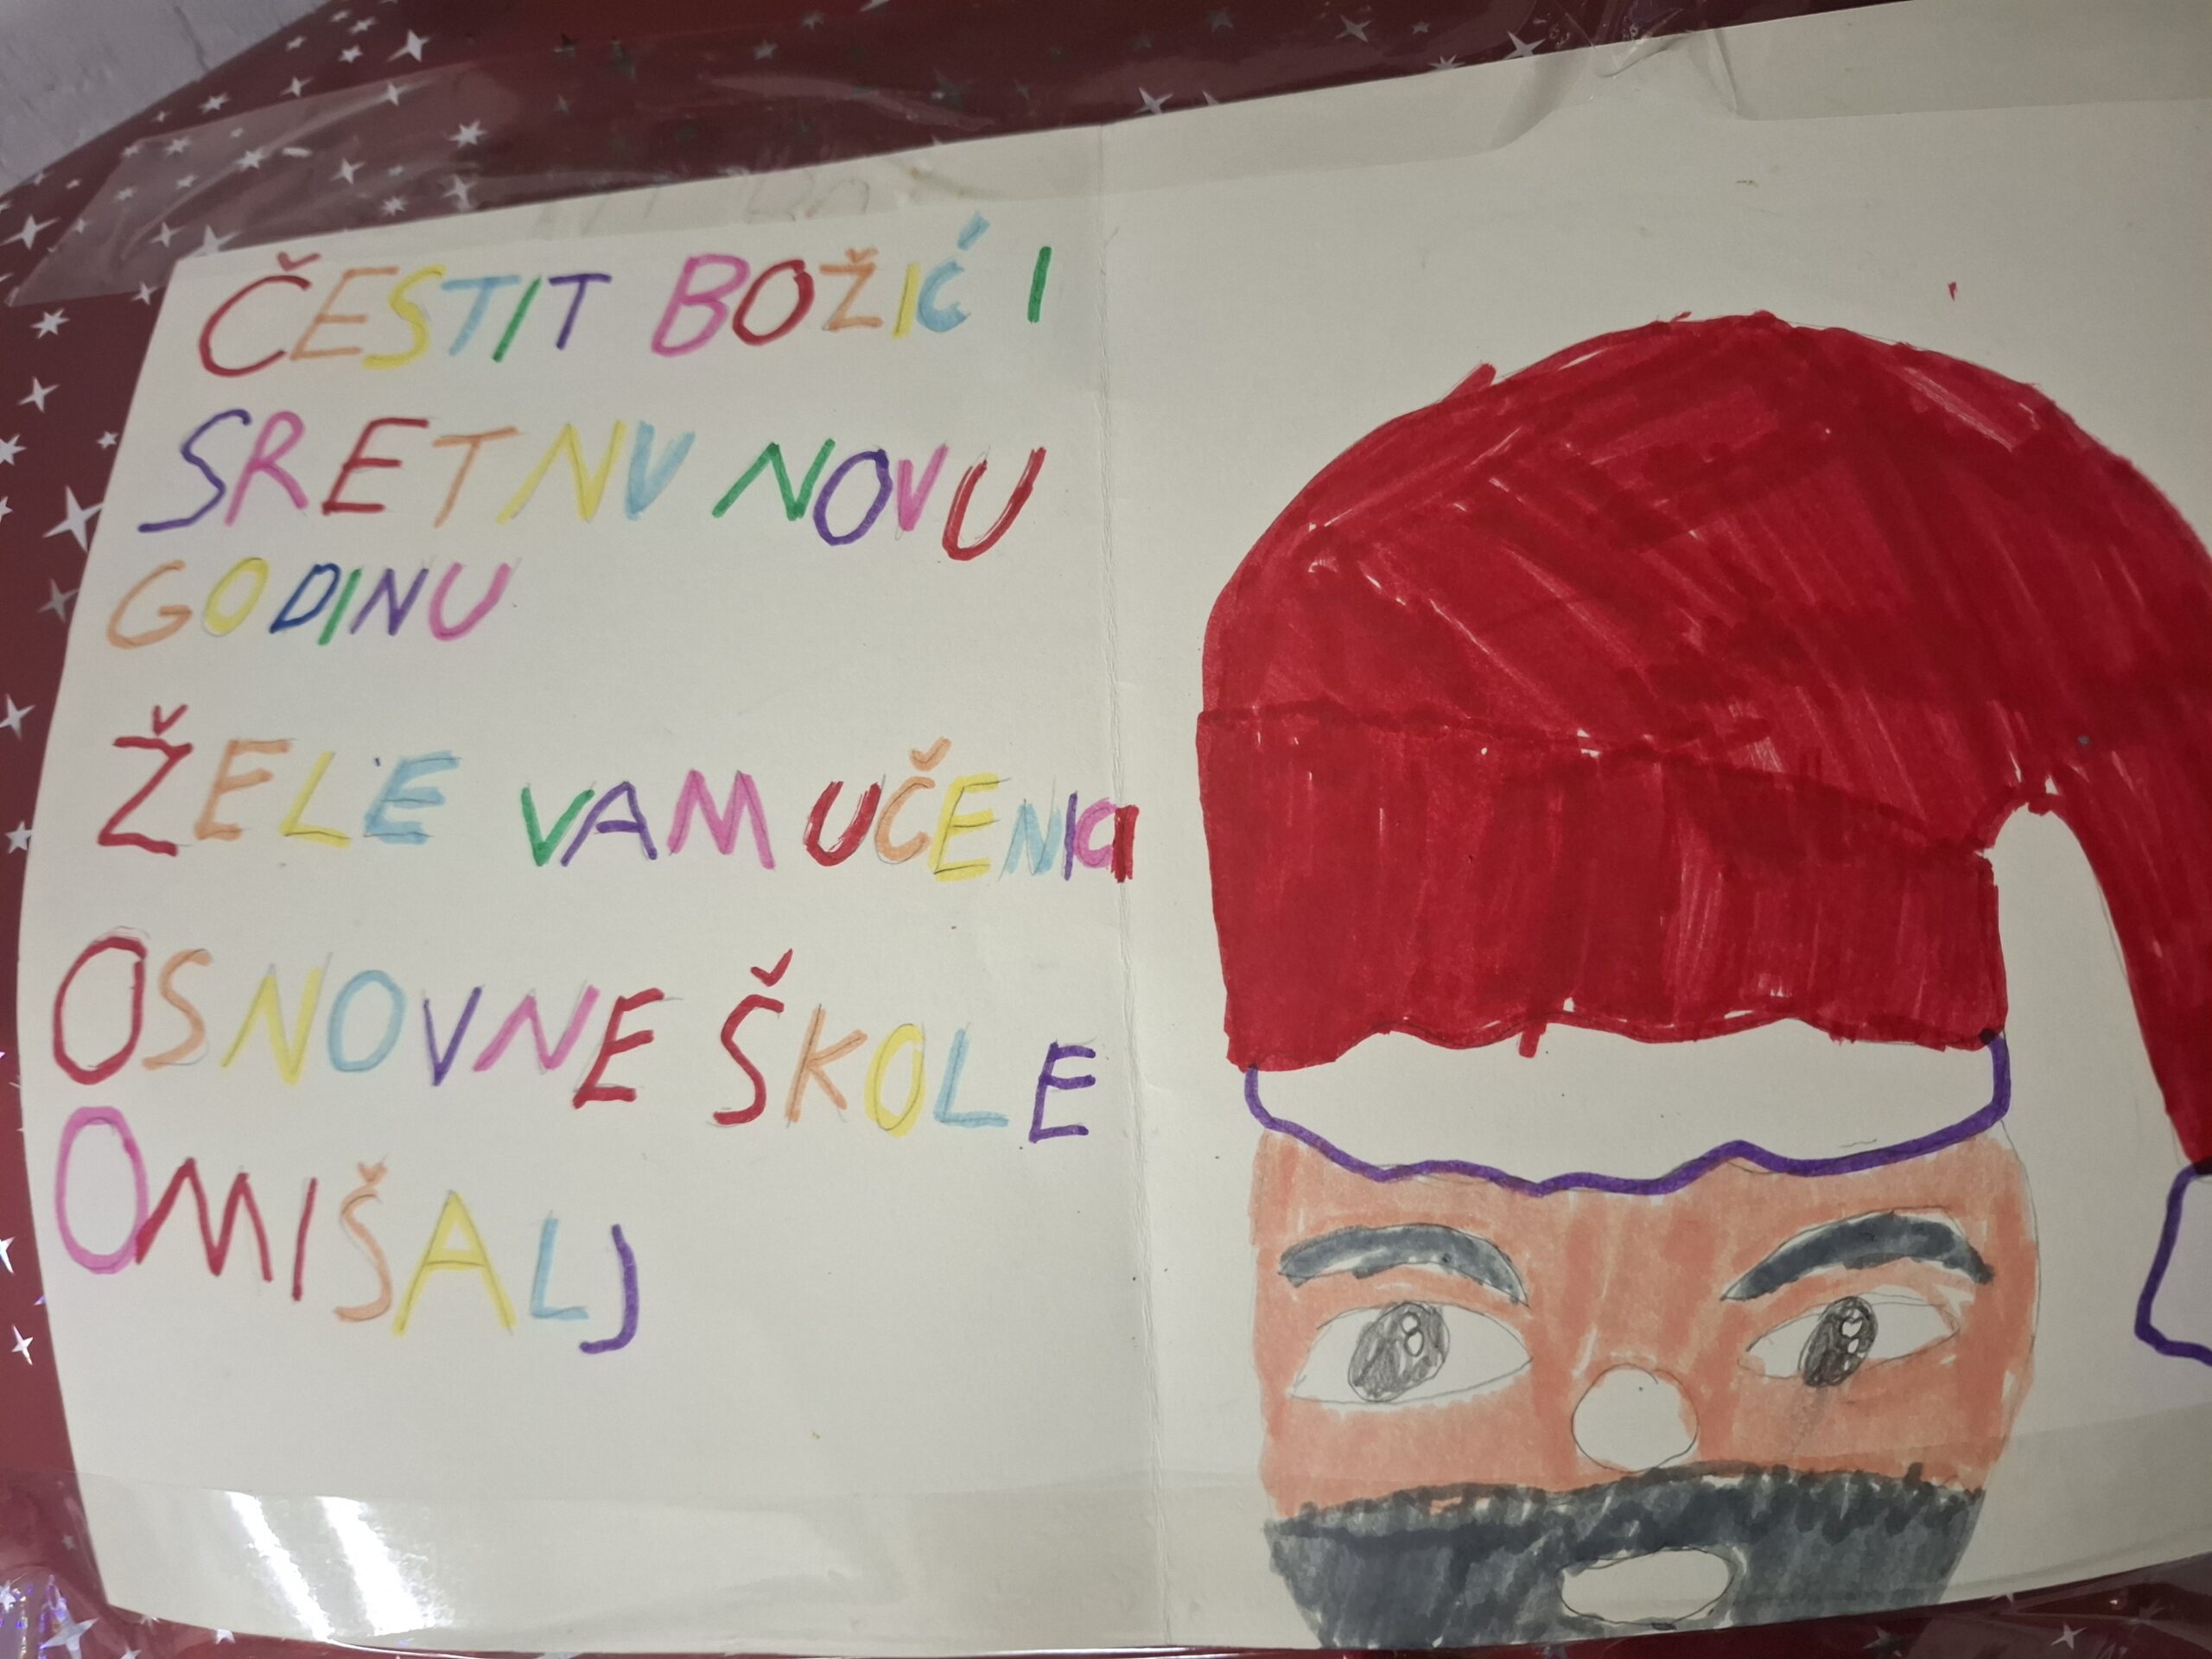 ČESTIT BOŽIĆ I
SRETNU NOVU
GODINU
ŽELE VAM UČENICI
OSNOVNE ŠKOLE
OMIŠALJ